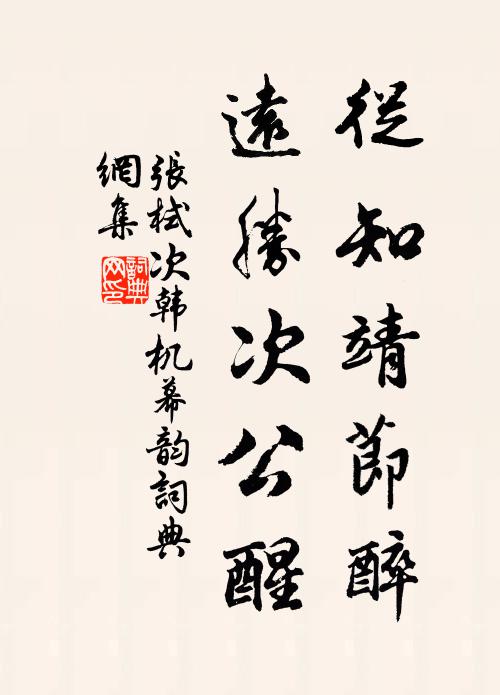 從知靖節醉
遠勝次公醒
張栻次韩机幕韵詞典
網集
詞典
网印